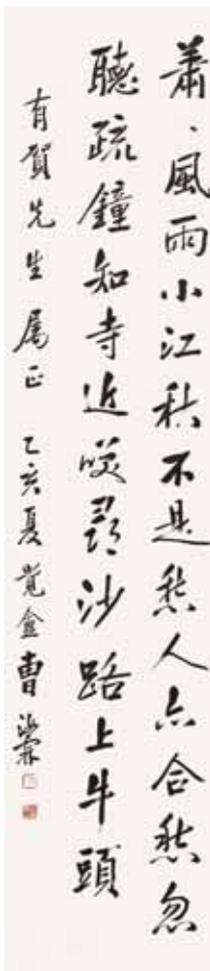 蕭、風雨小江秋不是愁人亦合愁忽
聽疏鐘知寺近咲尋沙路上牛頭
有賀先生屬正 乙亥夏覺盦曹汝霖